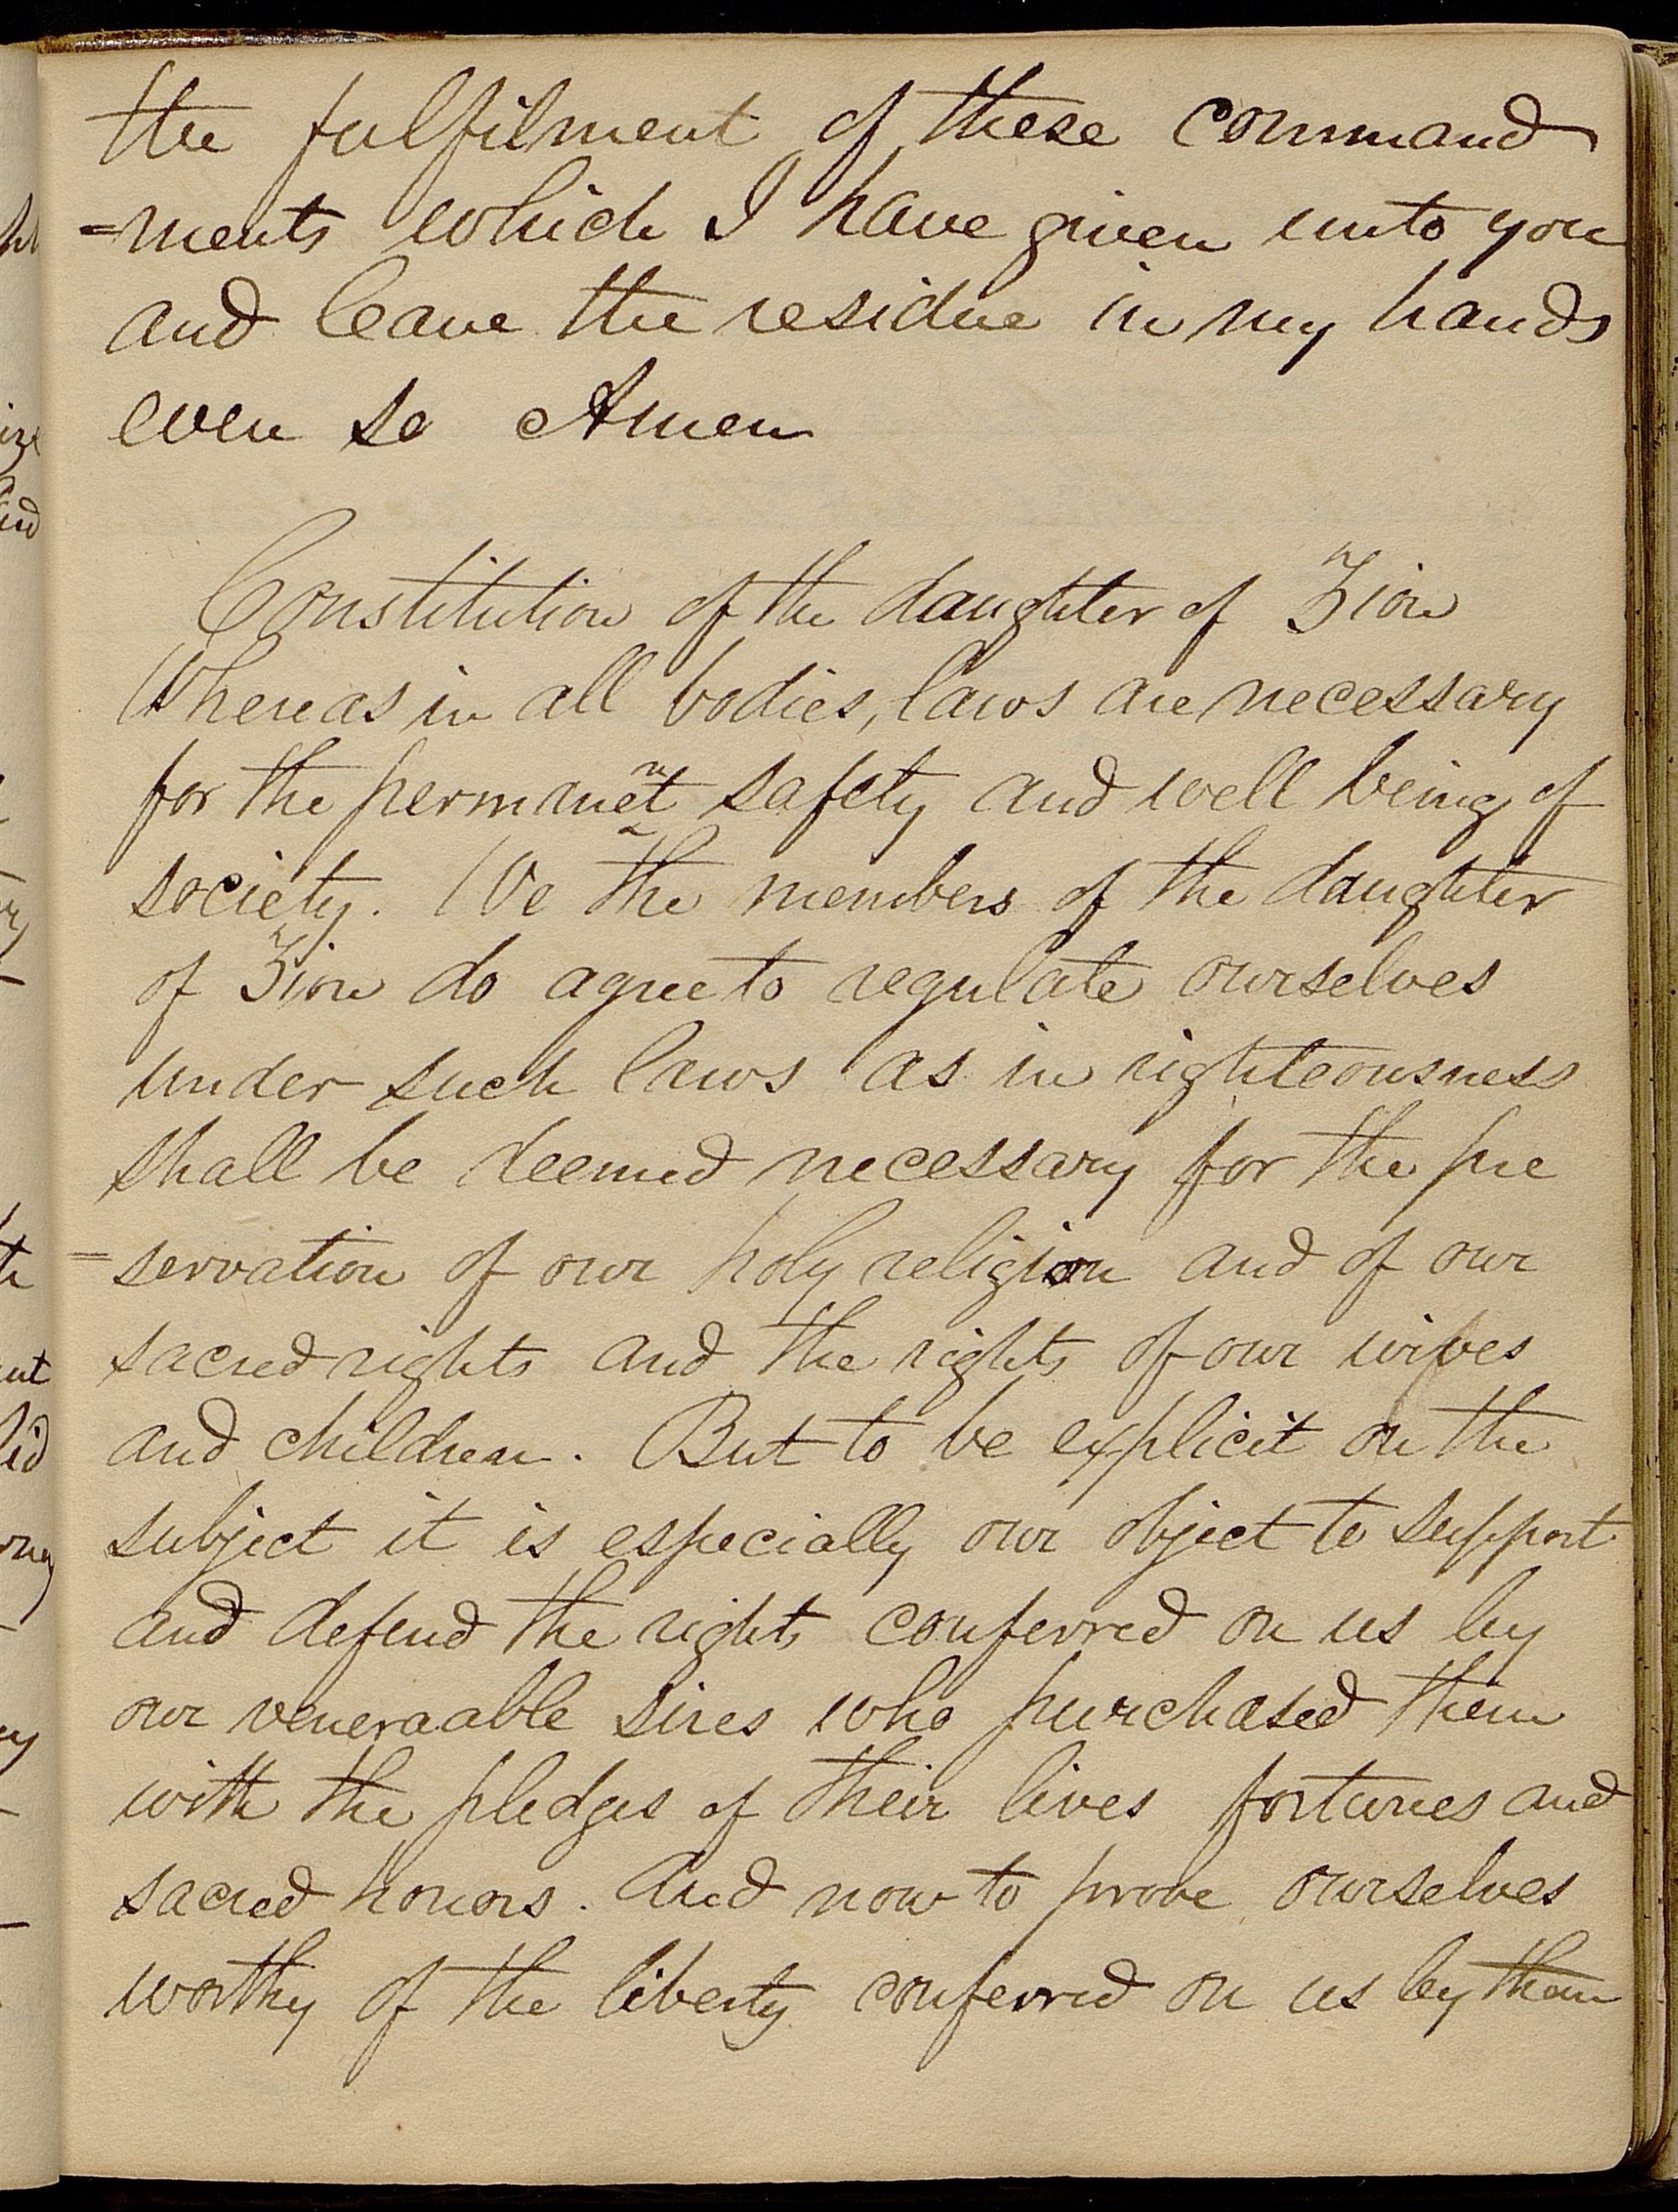 the fulfilment of these command
=ments which I have given unto you
and leave the residue in my hands
even so Amen
Constitution of the daughter of Zion
Whereas in all bodies, laws are necessary
for the permanent safety and well being of
society. We the members of the daughter
of Zion do agree to regulate ourselves
under such laws as in righteousness
shall be deemed necessary for the pre
=servation of our holy religion and of our
sacred rights and the rights of our wives
and children. But to be explicit on the
subject it is especially our object to support
and defend the rights conferred on us by
our veneraable sires who purchased them
with the pledges of their lives fortunes and
sacred honors. And now to prove ourselves
worthy of the liberty conferred on us by them